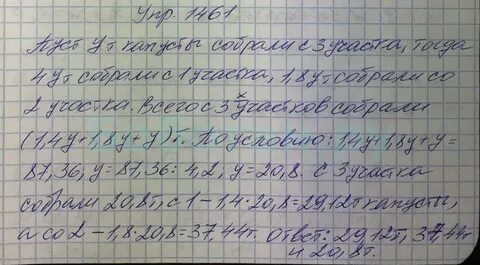 Упр. 1461
Пуст y т капусты собрали с 3 участка, тогда
4 y т собрали с 1 участка, 1,8 y т собрали со
2 участка. Всего с 3 х участков собрали
(1,4y+1,8y+y)т. По условию: 1,4y+1,8y+y=
87,36, y=87,36:4,2, y=20,8. С 3 участка
собрали 20,8т, с 1 – 1,4·20,8=29,12т капусты,
а со 2 – 1,8·20,8=37,44т. Ответ: 29,12т, 37,44т
и 20,8т.